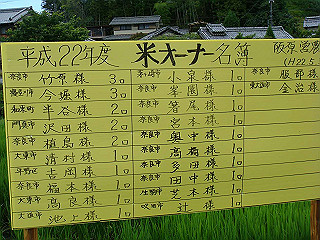 平成22年度 米オーナー名簿 阪原営農
(H22.5
奈良市 竹原様 3口
寝屋川市 今堀様 3口
和束町 半谷様 2口
門真市 沢田様 2口
奈良市 植島様 2口
大東市 清村様 1口
平野区 吉岡様 1口
奈良市 福本様 1口
大東市 高良様 1口
大阪市 池上様 1口
茅ヶ崎市 小泉様 1口
〃 峯園様 1口
〃 箸尾様 1口
奈良市 宮本様 1口
奈良市 奥中様 1口
奈良市 高橋様 1口
奈良市 多田様 1口
奈良市 田中様 1口
生駒市 芝本様 1口
吹田市 辻様 1口
奈良市 服部様
東大阪市 金治様